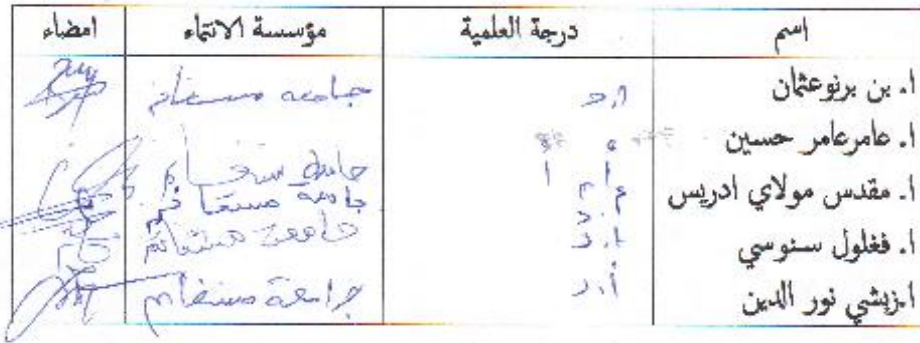 اسم درجة العلمية مؤسسة الانتماء امضاء
ا. بن برنوعثمان أ.د جامعة مستغانم
ا. عامرعامر حسين جامعة مستغانم
ا. مقدس مولاي ادريس جامعة مستغانم
ا. فغلول سنوسي أ.د جامعة مستغانم
ا.زيشي نور الدين أ.د جامعة مستغانم